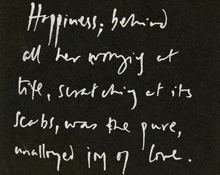 Happiness; behind
all her worrying at
life, scratching at its
scabs, was the pure,
unalloyed joy of love.